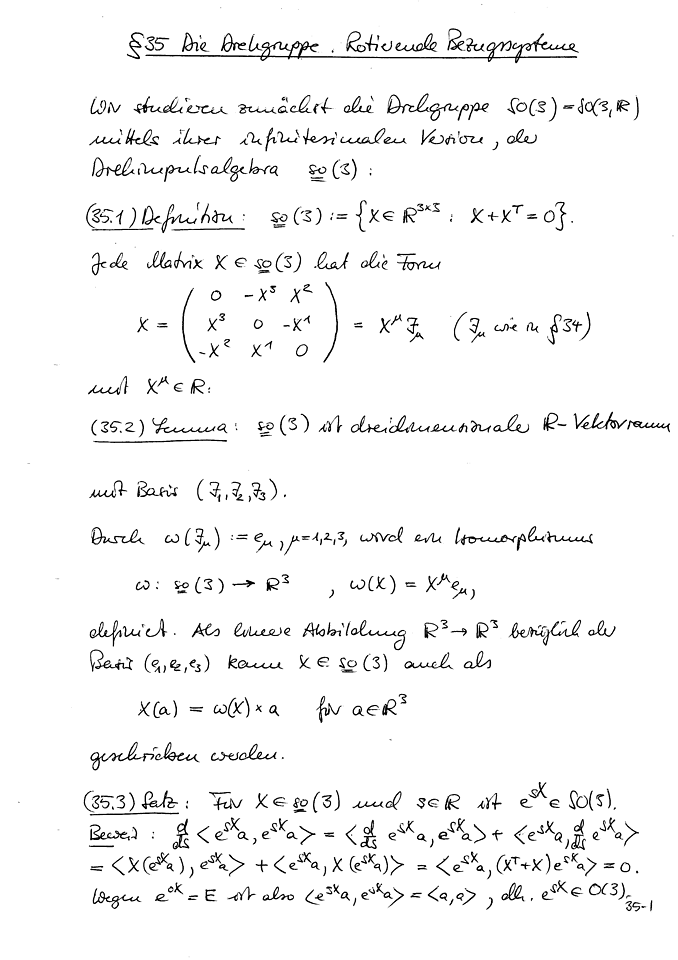 §35 Die Drehgruppe. Rotierende Bezugssysteme
Wir studieren zunächst die Drehgruppe SO(3) = SO(3,ℝ)
mittels ihrer infinitesimalen Version, der
Drehimpulsalgebra so(3):
(35.1) Definition: so(3) := {X ∈ ℝ³ˣ³ : X + Xᵀ = 0}.
Jede Matrix X ∈ so(3) hat die Form
X = ( 0 -X³ X²
X³ 0 -X¹
-X² X¹ 0 ) = X^μ J_μ (J_μ wie in §34)
mit X^μ ∈ ℝ:
(35.2) Lemma: so(3) ist dreidimensionale ℝ-Vektorraum
mit Basis (J₁, J₂, J₃).
Durch ω(J_μ) := e_μ, μ=1,2,3, wird ein Isomorphismus
ω: so(3) → ℝ³ , ω(X) = X^μ e_μ,
definiert. Als lineare Abbildung ℝ³ → ℝ³ bezüglich der
Basis (e₁,e₂,e₃) kann X ∈ so(3) auch als
X(a) = ω(X) × a für a ∈ ℝ³
geschrieben werden.
(35.3) Satz: Für X ∈ so(3) und s ∈ ℝ ist e^{sX} ∈ SO(3).
Beweis: d/ds <e^{sX}a, e^{sX}a> = <d/ds e^{sX}a, e^{sX}a> + <e^{sX}a, d/ds e^{sX}a>
= <X(e^{sX}a), e^{sX}a> + <e^{sX}a, X(e^{sX}a)> = <e^{sX}a, (Xᵀ+X)e^{sX}a> = 0.
Wegen e^{0X} = E ist also <e^{sX}a, e^{sX}a> = <a,a>, d.h. e^{sX} ∈ O(3).
35-1